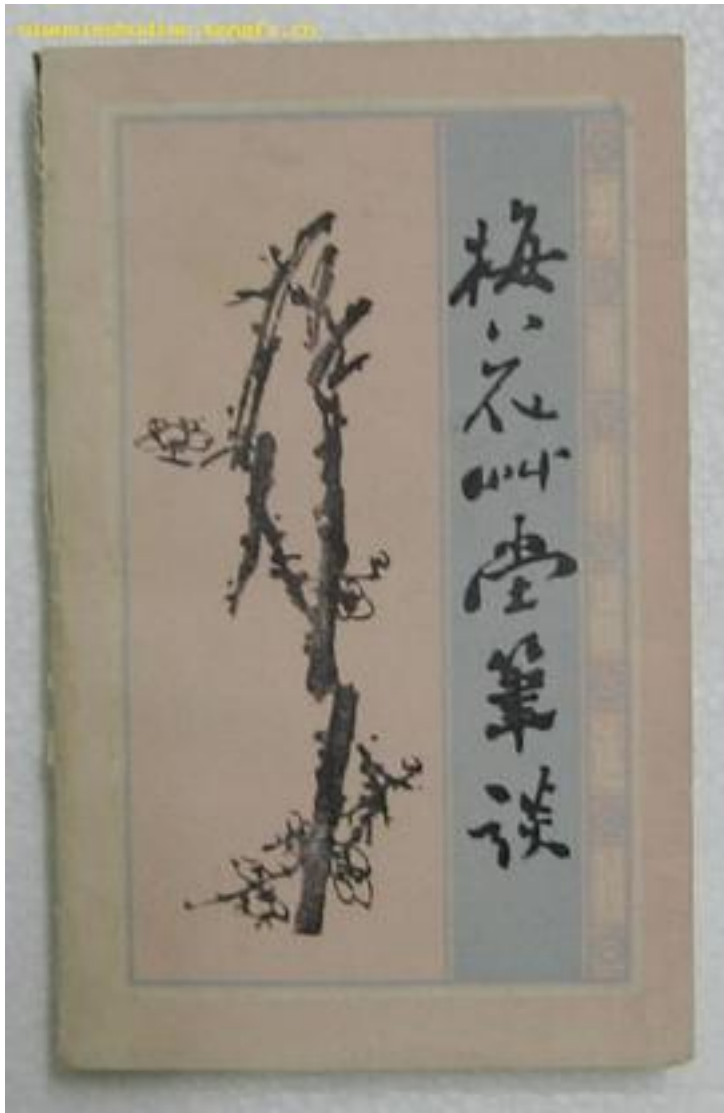 梅花艸堂筆談